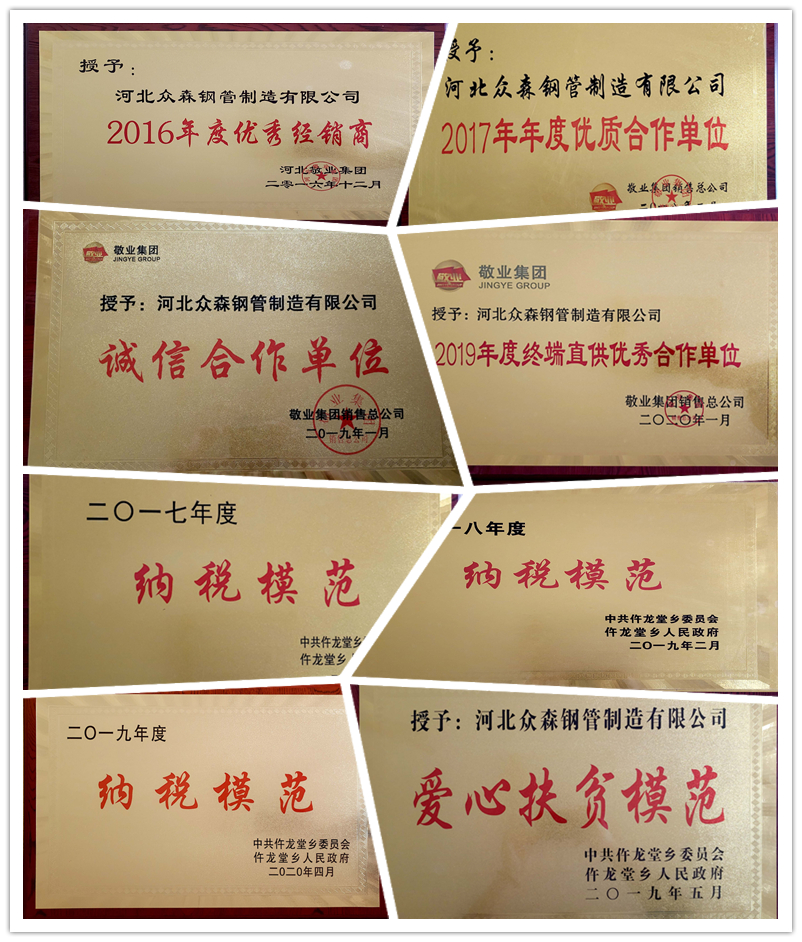 授予：
河北众森钢管制造有限公司
2016年度优秀经销商
河北敬业集团
二零一六年十二月
授予：
河北众森钢管制造有限公司
2017年年度优质合作单位
敬业集团销售总公司
敬业集团
JINGYE GROUP
授予：河北众森钢管制造有限公司
诚信合作单位
敬业集团销售总公司
二〇一九年一月
敬业集团
JINGYE GROUP
授予：河北众森钢管制造有限公司
2019年度终端直供优秀合作单位
敬业集团销售总公司
二〇二〇年一月
二〇一七年度
纳税模范
中共仵龙堂乡
仵龙堂乡人
一八年度
纳税模范
中共仵龙堂乡委员会
仵龙堂乡人民政府
二〇一九年二月
二〇一九年度
纳税模范
中共仵龙堂乡委员会
仵龙堂乡人民政府
二〇二〇年四月
授予：河北众森钢管制造有限公司
爱心扶贫模范
中共仵龙堂乡委员会
仵龙堂乡人民政府
二〇一九年五月